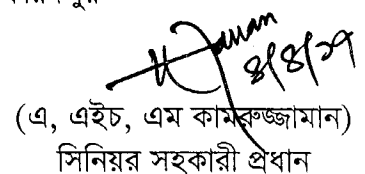 ৪/৪/১৭
(এ, এইচ, এম কামরুজ্জামান)
সিনিয়র সহকারী প্রধান